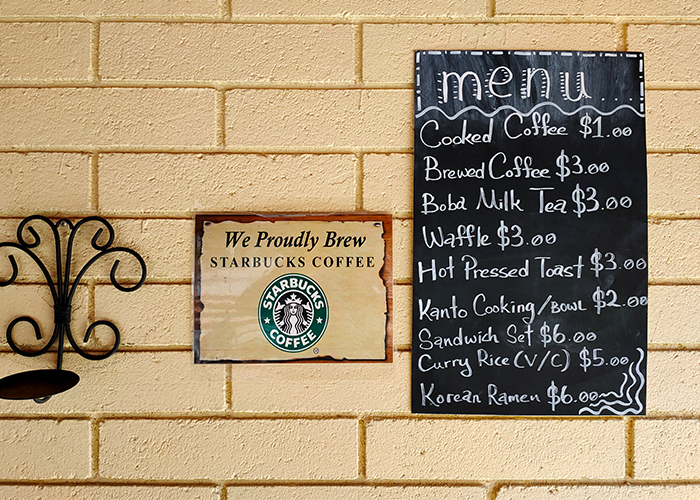 menu...
Cooked Coffee $1.00
Brewed Coffee $3.00
Boba Milk Tea $3.00
Waffle $3.00
Hot Pressed Toast $3.00
Kanto Cooking/BOWL $2.00
Sandwich Set $6.00
Curry Rice (V/C) $5.00
Korean Ramen $6.00
We Proudly Brew
STARBUCKS COFFEE
STARBUCKS
COFFEE
®